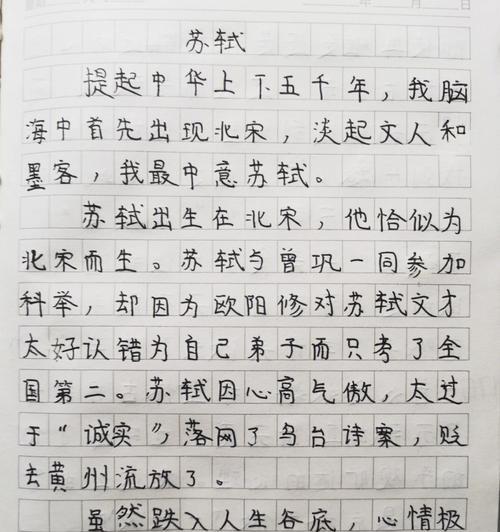 苏轼
提起中华上下五千年，我脑
海中首先出现北宋，淡起文人和
墨客，我最中意苏轼。
苏轼出生在北宋，他恰似为
北宋而生。苏轼与曾巩一同参加
科举，却因为欧阳修对苏轼文才
太好认错为自己弟子而只考了全
国第二。苏轼因心高气傲，太过
于“诚实”，落网了乌台诗案，贬
去黄州流放了。
虽然跌入人生谷底，心情极